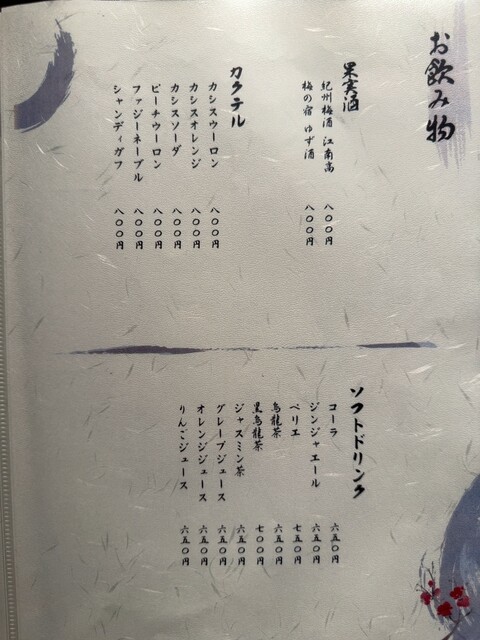 お飲み物
果実酒
紀州梅酒 江南高 八〇〇円
梅の宿 ゆず酒 八〇〇円
カクテル
カシスウーロン 八〇〇円
カシスオレンジ 八〇〇円
カシスソーダ 八〇〇円
ピーチウーロン 八〇〇円
ファジーネーブル 八〇〇円
シャンディガフ 八〇〇円
ソフトドリンク
コーラ 六五〇円
ジンジャエール 六五〇円
ペリエ 七五〇円
烏龍茶 六五〇円
黒烏龍茶 七〇〇円
ジャスミン茶 六五〇円
グレープジュース 六五〇円
オレンジジュース 六五〇円
りんごジュース 六五〇円